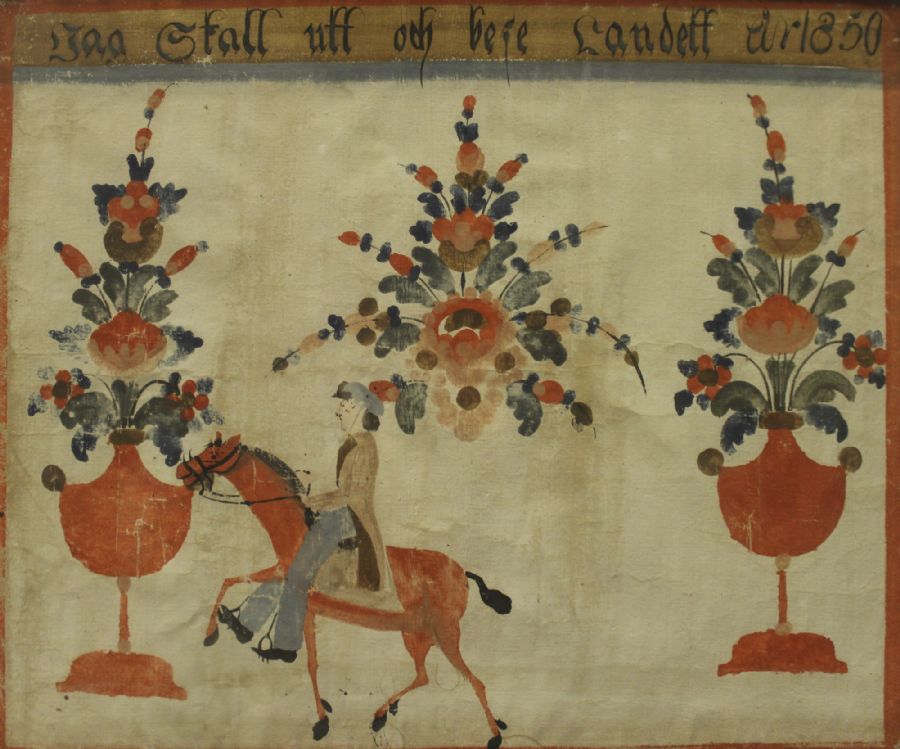 Jag Skall utt och bese Landett År 1850